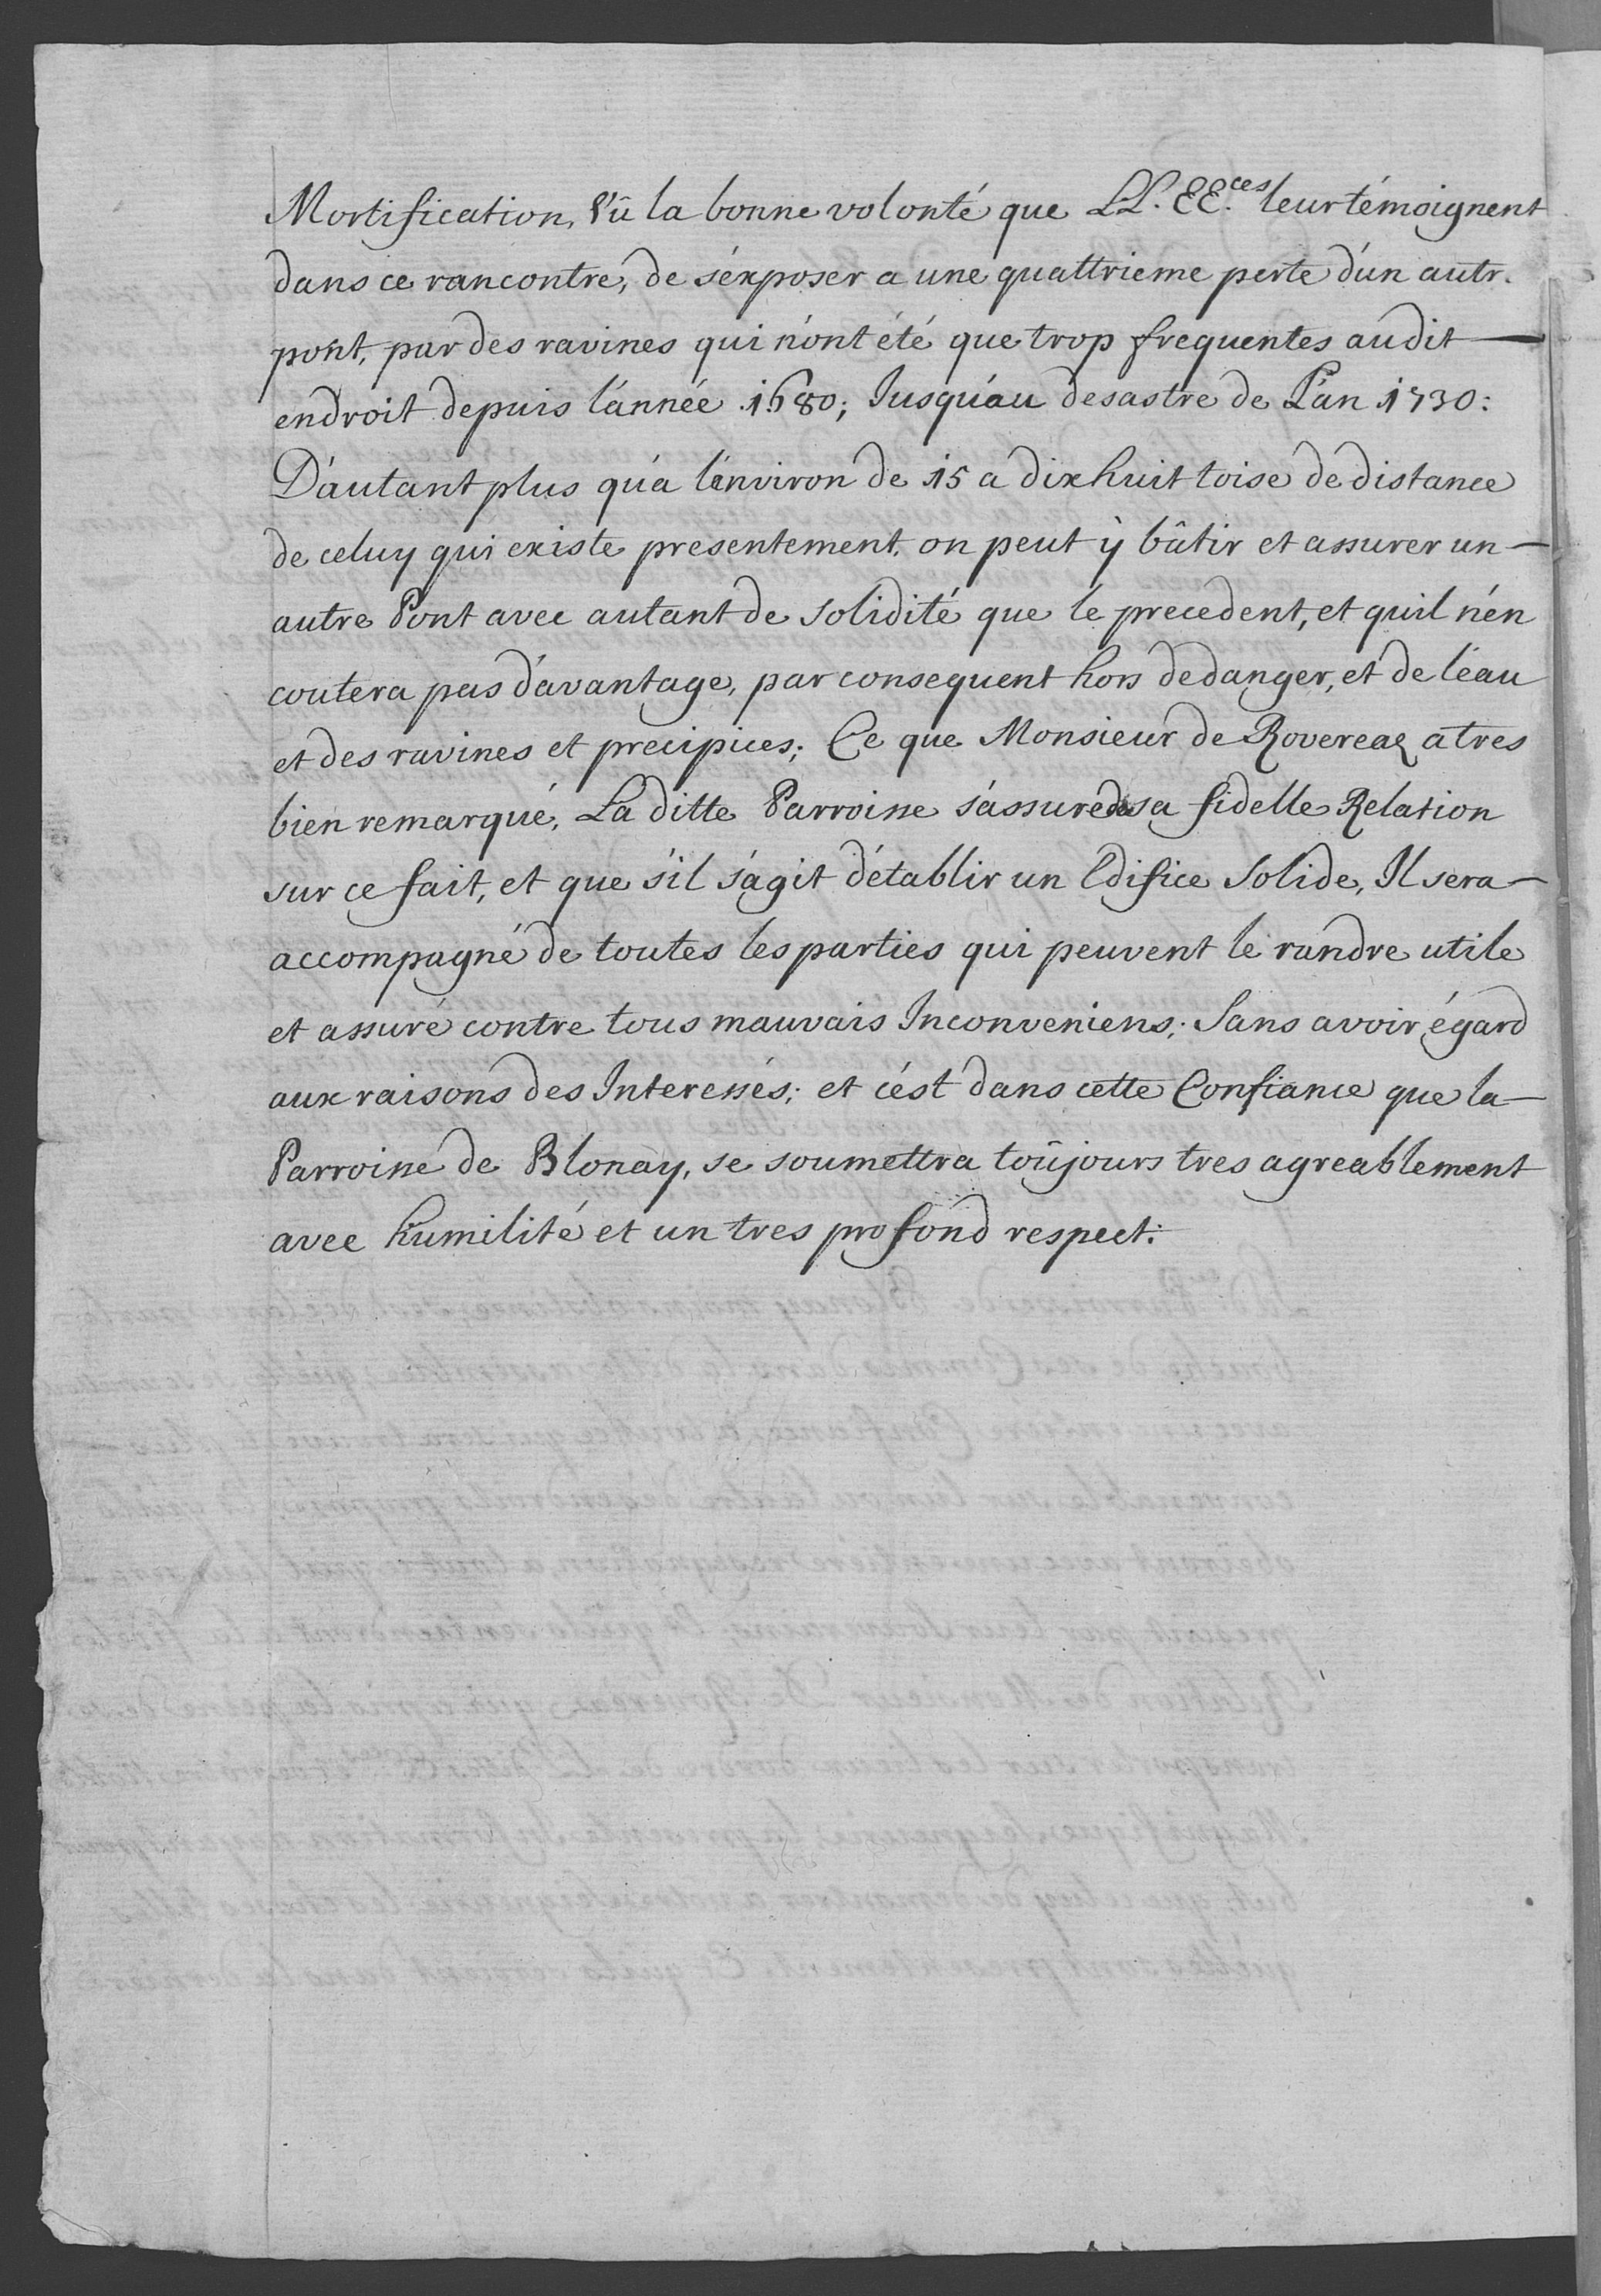 Mortification, Vû la bonne volonté que LL. EE.ces leur témoignent
dans ce rancontre, de s'éxposer a une quattrieme perte d'ún autr.
pont, par des ravines qui n'ónt été que trop frequentes audit —
endroit depuis l'ánnée 1680; Jusqu'áu desastre de L'án 1730:
D'áutant plus qu'á l'énviron de 15 a dixhuit toise de distance
de celuy qui existe presentement, on peut ÿ bâtir et assurer un —
autre Pont avec autant de solidité que le precedent, et quil n'én
coutera pas d'ávantage, par consequent hors de danger, et de l'éau
et des ravines et precipices; Ce que Monsieur de Rovereaz a tres
bien remarqué, La ditte Parroisse s'ássure de sa fidelle Relation
sur ce fait, et que s'íl s'ágit d'établir un Edifice solide, Il sera —
accompagné de toutes les parties qui peuvent le randre utile
et assuré contre tous mauvais Inconveniens; Sans avoir égard
aux raisons des Interessés; et c'ést dans cette Confiance que la —
Parroisse de Blonay, se soumettra toûjours tres agreablement
avec humilité et un tres profond respect.